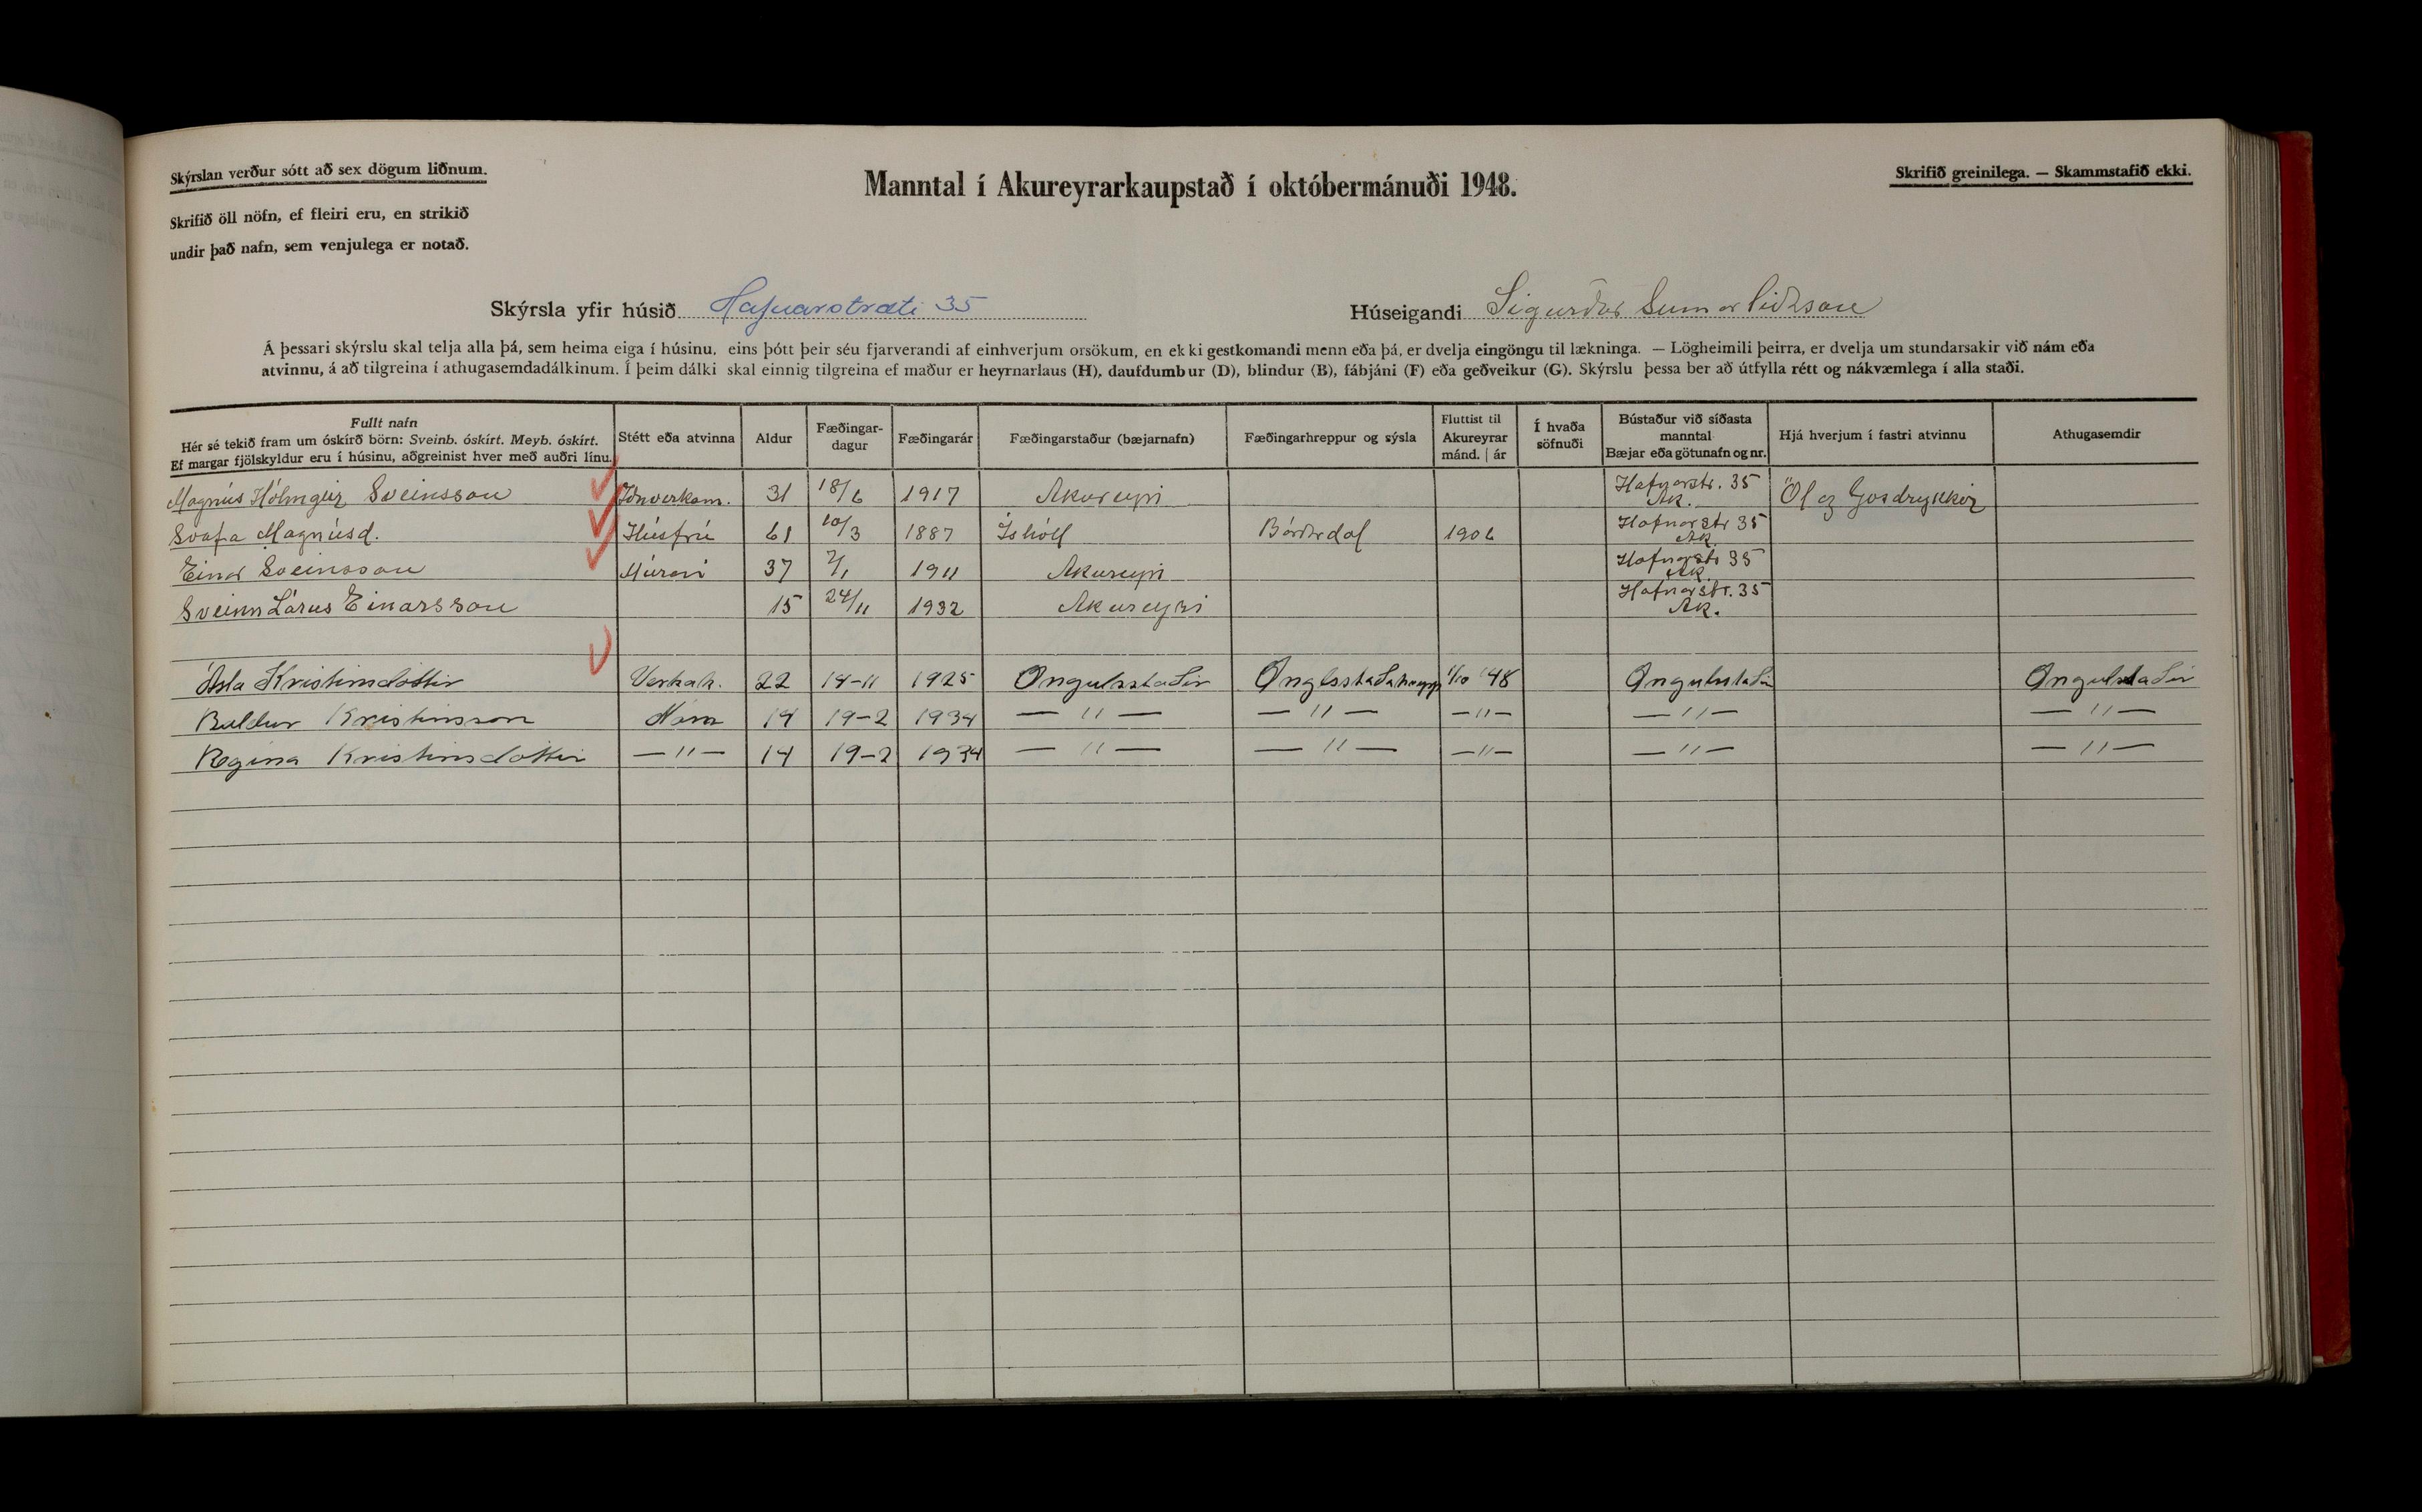 Skýrslan verður sótt að sex dögum liðnum.
Skrifið öll nöfn, ef fleiri eru, en strikið
undir það nafn, sem venjulega er notað.
Manntal í Akureyrarkaupstað í októbermánuði 1948.
Skrifið greinilega. — Skammstafið ekki.
Skýrsla yfir húsið Hafnarstræti 35
Húseigandi Sigurður Sumarliðason
Á þessari skýrslu skal telja alla þá, sem heima eiga í húsinu, eins þótt þeir séu fjarverandi af einhverjum orsökum, en ekki gestkomandi menn eða þá, er dvelja eingöngu til lækninga. — Lögheimili þeirra, er dvelja um stundarsakir við nám eða
atvinnu, á að tilgreina í athugasemdadálkinum. Í þeim dálki skal einnig tilgreina ef maður er heyrnarlaus (H), daufdumbur (D), blindur (B), fábjáni (F) eða geðveikur (G). Skýrslu þessa ber að útfylla rétt og nákvæmlega í alla staði.
Fullt nafn
Hér sé tekið fram um óskírð börn: Sveinb. óskírt. Meyb. óskírt.
Ef margar fjölskyldur eru í húsinu, aðgreinist hver með auðri línu.
Stétt eða atvinna
Aldur
Fæðingar-
dagur
Fæðingarár
Fæðingarstaður (bæjarnafn)
Fæðingarhreppur og sýsla
Fluttist til
Akureyrar
mánd. | ár
Í hvaða
söfnuði
Bústaður við síðasta
manntal
Bæjar eða götunafn og nr.
Hjá hverjum í fastri atvinnu
Athugasemdir
Magnús Hólmgeir Sveinsson Iðnverkam. 31 18/6 1917 Akureyri Hafnarstr. 35 Ak. Öl og Gosdrykkir
Svafa Magnúsd. Húsfrú 61 10/3 1887 Íshóll Bárðrdal 1906 Hafnarstr 35 Ak.
Einar Sveinsson Múrari 37 7/1 1911 Akureyri Hafnarstr 35 Ak.
Sveinn Lárus Einarsson 15 24/11 1932 Akureyri Hafnarstr. 35 Ak.
Ásta Kristinsdóttir Verkak. 22 14-11 1925 Öngulsstaðir Önglsstaðahrepp 1/10 '48 Öngulstaðir Öngulstaðir
Baldur Kristinsson Nám 14 19-2 1934 — " — — " — — " — — " — — " —
Regína Kristinsdóttir — " — 14 19-2 1934 — " — — " — — " — — " — — " —